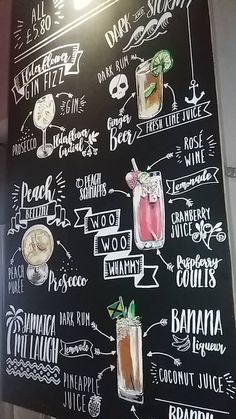 ALL
£5.80
DARK AND STORMY
Elderflower
GIN FIZZ
GIN
PROSECCO
Elderflower
Cordial
DARK RUM
Ginger
Beer
FRESH LIME JUICE
Peach
BELLINI
PEACH
PURÉE
Prosecco
PEACH
SCHNAPPS
WOO
WOO
WHAMMY
ROSÉ
WINE
Lemonade
CRANBERRY
JUICE
Raspberry
COULIS
JAMAICA
ME LAUGH
DARK RUM
Lemonade
PINEAPPLE
JUICE
BANANA
Liqueur
COCONUT JUICE
BRANDY